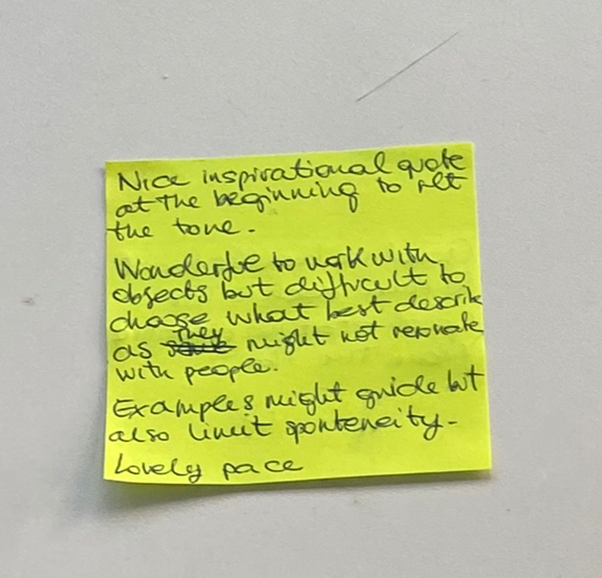 Nice inspirational quote
at the beginning to set
the tone.
Wonderful to work with
objects but difficult to
choose what best describe
as they might not resonate
with people.
Examples might guide but
also limit sponteneity.
Lovely pace